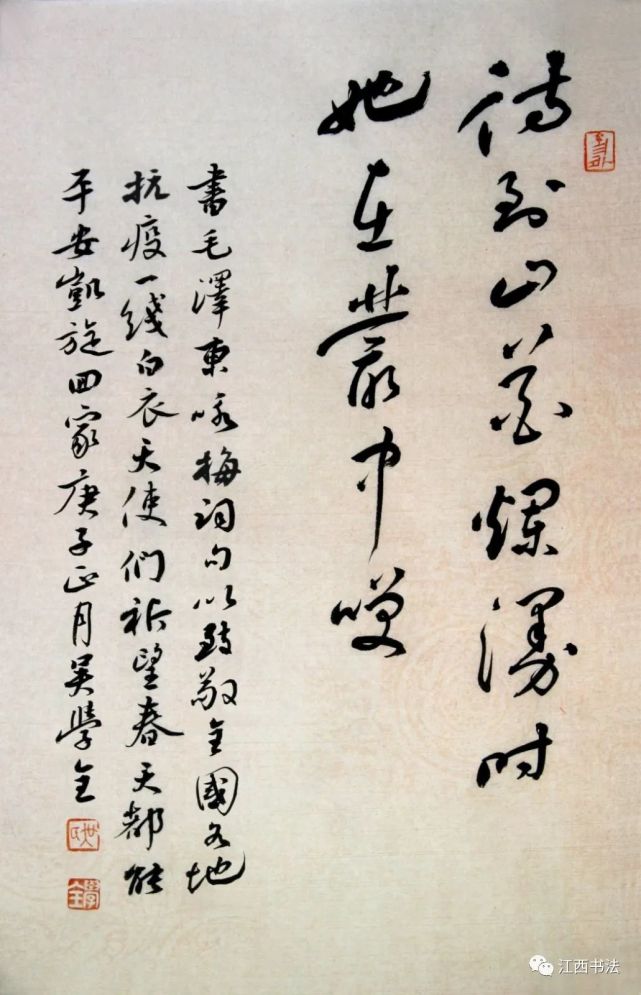 待到山花爛漫时
她在叢中咲
書毛澤東咏梅词句以致敬全國各地
抗疫一线白衣天使们祈望春天都能
平安凱旋回家庚子正月吴學全
學全
江西书法